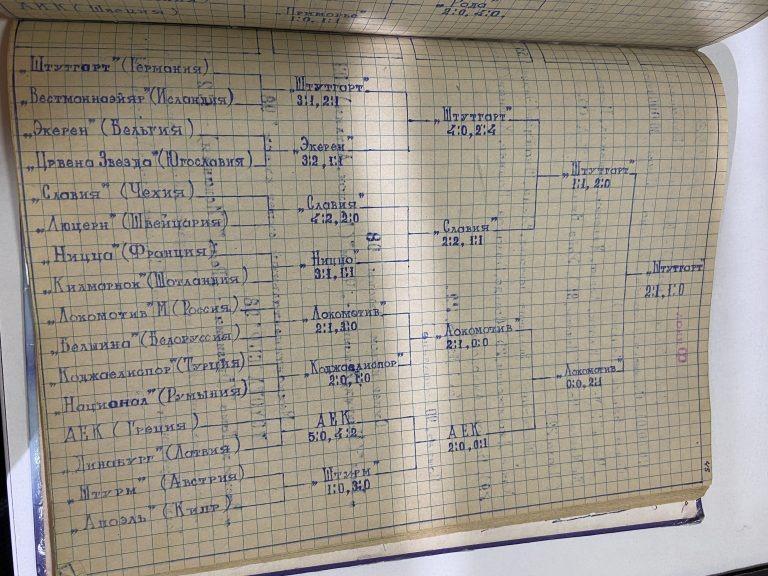 АИК (Швеция)
"Приморье"
1:0, 1:1
"Рода"
2:0, 4:0.
"Штутгарт" (Германия)
"Вестманнаэйяр" (Исландия)
"Экерен" (Бельгия)
"Црвена Звезда" (Югославия)
"Славия" (Чехия)
"Люцерн" (Швейцария)
"Ницца" (Франция)
"Килмарнок" (Шотландия)
"Локомотив" М (Россия)
"Белшина" (Белоруссия)
"Коджаелиспор" (Турция)
"Национал" (Румыния)
АЕК (Греция)
"Динабург" (Латвия)
"Штурм" (Австрия)
"Апоэль" (Кипр)
"Штутгарт"
3:1, 2:1
"Экерен"
3:2, 1:1
"Славия"
4:2, 2:0
"Ницца"
3:1, 1:1
"Локомотив"
2:1, 3:0
"Коджаелиспор"
2:0, 1:0
АЕК
5:0, 4:2
"Штурм"
1:0, 3:0
"Штутгарт"
4:0, 2:4
"Славия"
2:2, 1:1
"Локомотив"
2:1, 0:0
АЕК
2:0, 0:1
"Штутгарт"
1:1, 2:0
"Локомотив"
0:0, 2:1
"Штутгарт"
2:1, 1:0
45